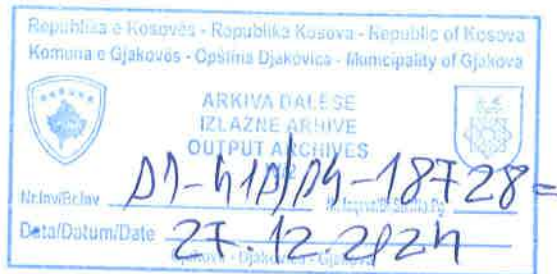 Republika e Kosovës - Republika Kosova - Republic of Kosova
Komuna e Gjakovës - Opština Djakovica - Municipality of Gjakova
ARKIVA DALËSE
IZLAZNE ARHIVE
OUTPUT ARCHIVES
Nr.Inv/Br.Inv 18728=
Data/Datum/Date 27.12.2024
Gjakovë - Djakovica - Gjakova